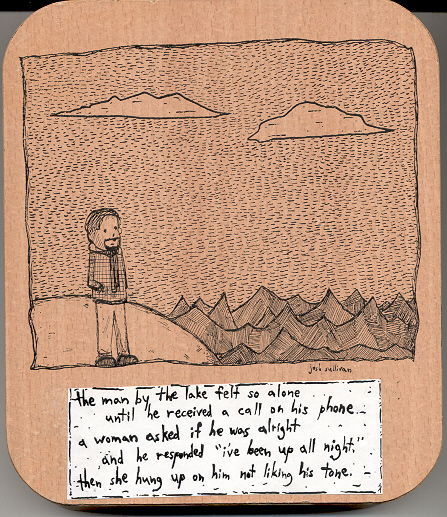 josh sullivan
the man by the lake felt so alone
until he received a call on his phone.
a woman asked if he was alright
and he responded "i've been up all night."
then she hung up on him not liking his tone.